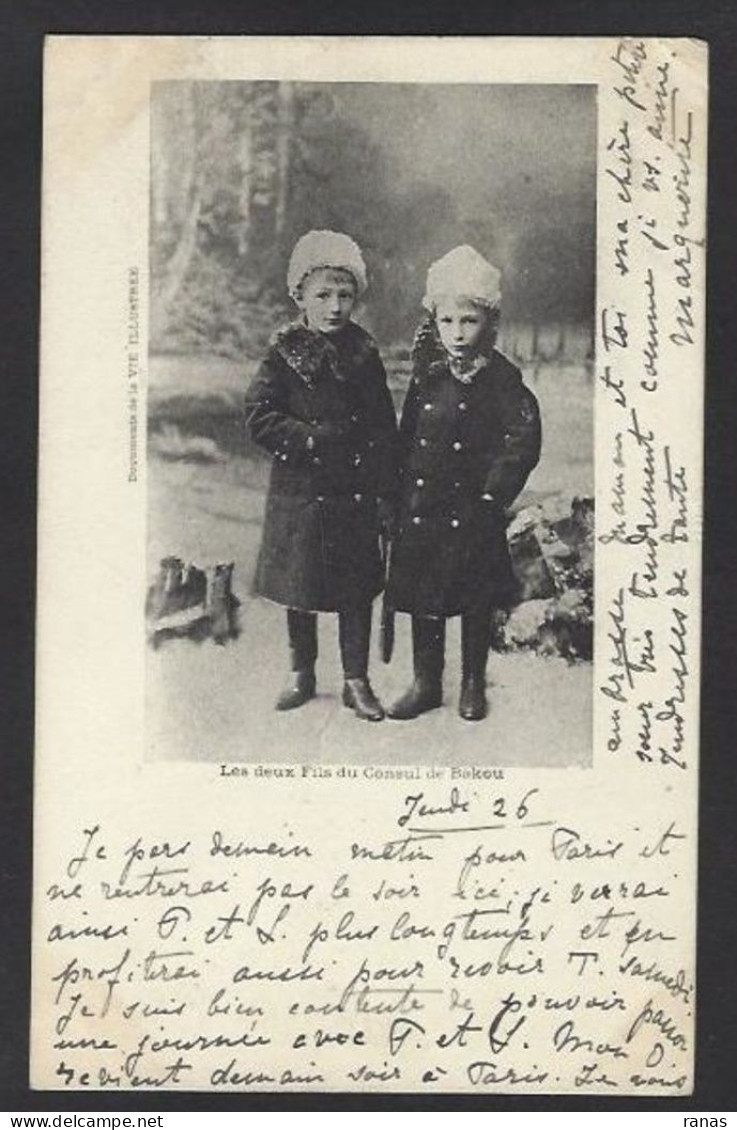 Documents de la VIE ILLUSTRÉE
Les deux Fils du Consul de Bakou
Jeudi 26
Je pars demain matin pour Paris et
ne rentrerai pas le soir ici, j verrai
ainsi P. et L. plus longtemps et en
profiterai aussi pour revoir T. samedi
Je suis bien contente de pouvoir passer
une journée avec P. et L. Mon O
revient demain soir à Paris. Je vous
embrasse maman et toi ma chère petite
sœur très tendrement comme je vs. aime.
Tendresses de Tante Marguerite
ranas